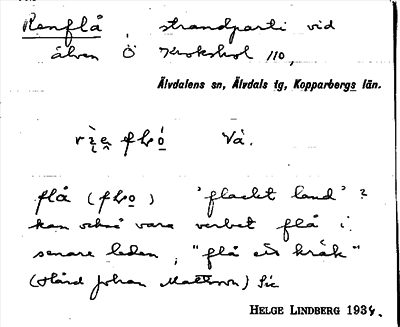 Renflå, strandparti vid
älven Ö Krokshol 110,
Älvdalens sn, Älvdals tg, Kopparbergs län.
Va.
flå ( ) 'flackt land' ?
kan också vara verbet flå i
senare leden, "flå en kråk"
(Hård Johan Mattsson) Sic
HELGE LINDBERG 1934.